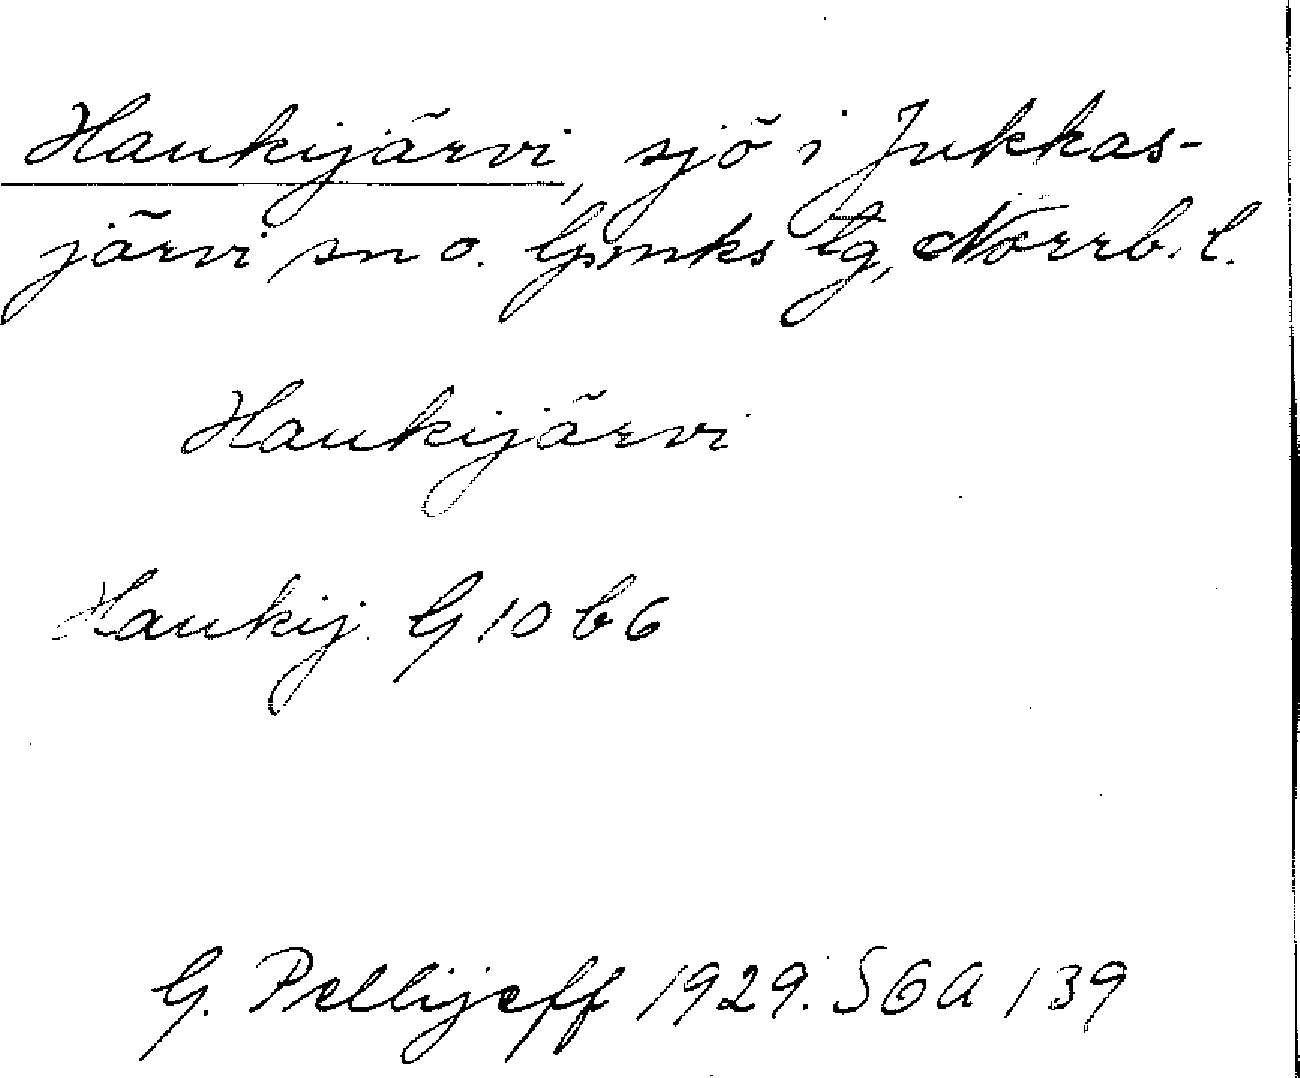 Haukijärvi, sjö i Jukkas-
järvi sn o. lpmks tg, Norrb. l.
Haukijärvi
Haukij. G 10 b 6
G. Pellijeff 1929. SGA 139